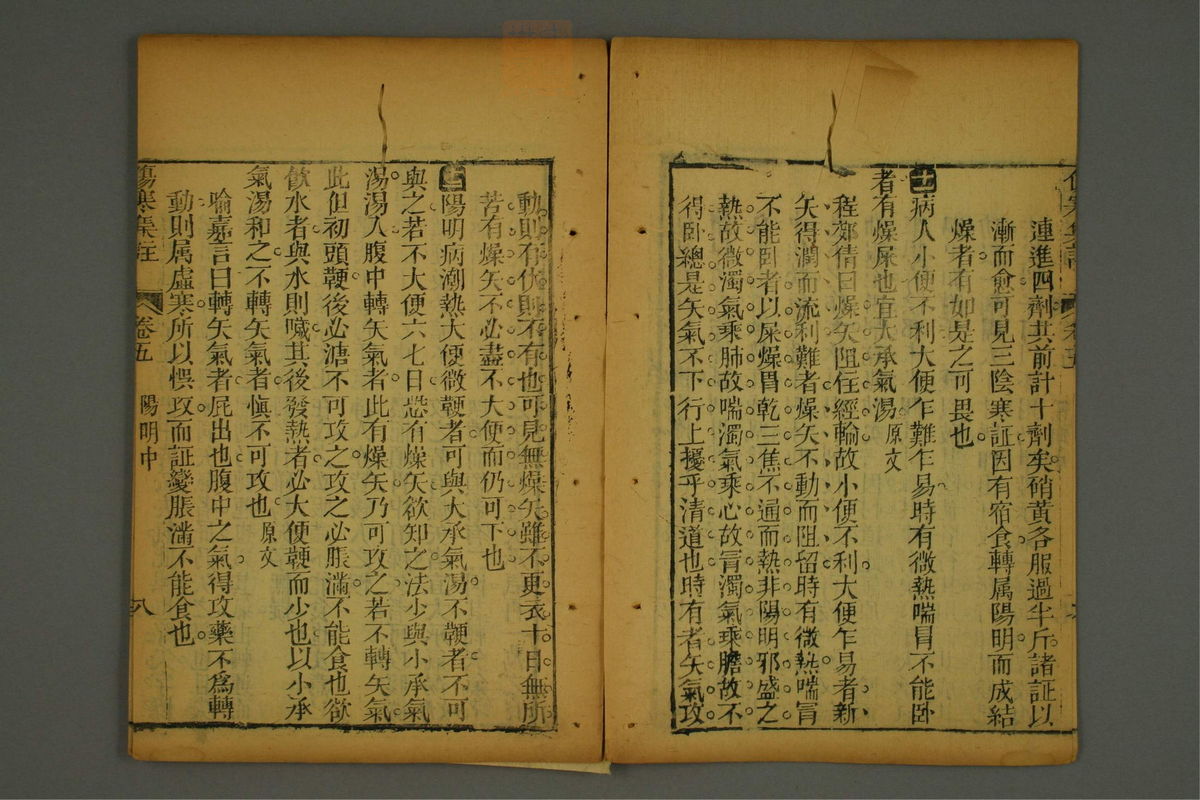 連進四劑其前計十劑矣硝黃各服過半斤諸証以
漸而愈可見三陰寒証因有宿食轉属陽明而成結
燥者有如是之可畏也
十病人小便不利大便乍難乍易時有微熱喘冒不能卧
者有燥屎也宜大承氣湯原文
程郊倩曰燥矢阻住經輸故小便不利大便乍易者新
矢得潤而流利難者燥矢不動而阻留時有微熱喘冒
不能卧者以屎燥胃乾三焦不通而熱非陽明邪盛之
熱故微濁氣乘肺故喘濁氣乘心故冐濁氣乘膽故不
得卧總是矢氣不下行上擾乎清道也時有者矢氣攻
動則有伏則不有也可見無燥矢雖不更衣十日無所
苦有燥矢不必盡不大便而仍可下也
陽明病潮熱大便微鞕者可與大承氣湯不鞕者不可
與之若不大便六七日恐有燥矢欲知之法少與小承氣
湯湯入腹中轉矢氣者此有燥矢乃可攻之若不轉矢氣
此但初頭鞕後必溏不可攻之攻之必脹滿不能食也欲
飲水者與水則噦其後發熱者必大便鞕而少也以小承
氣湯和之不轉矢氣者慎不可攻也原文
喻嘉言曰轉矢氣者屁出也腹中之氣得攻藥不爲轉
動則属虛寒所以悞攻而証變脹滿不能食也
傷寒集註 卷五 陽明中 八